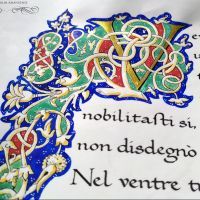 V
nobilitaſti sì,
non disdegnò
Nel ventre tu